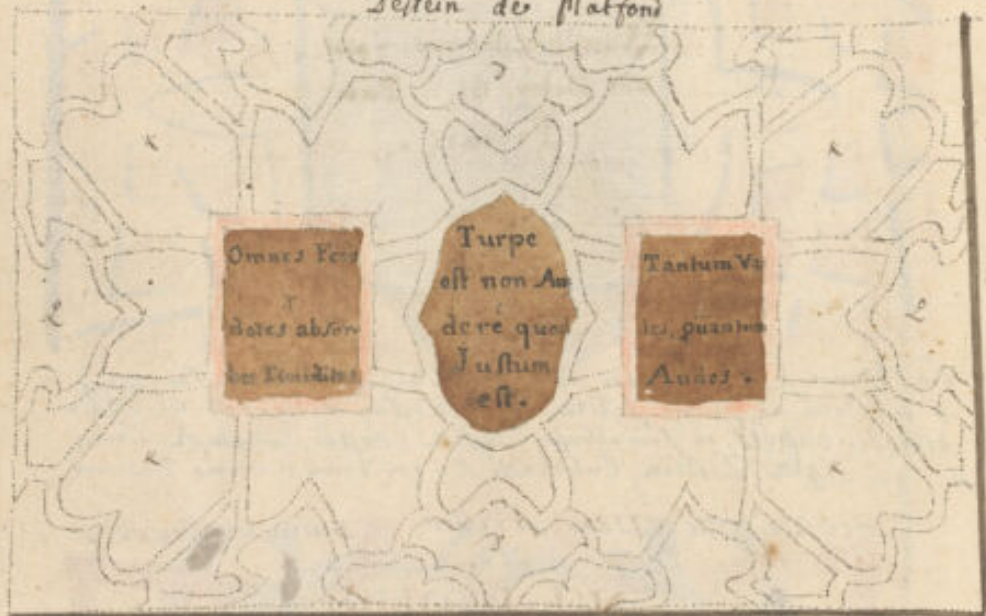 Dessein de Platfond
Omnes
dotes absor
bet
Turpe
est non Au
dere quod
Justum
est.
Tantum Va
les, quantum
Audes.